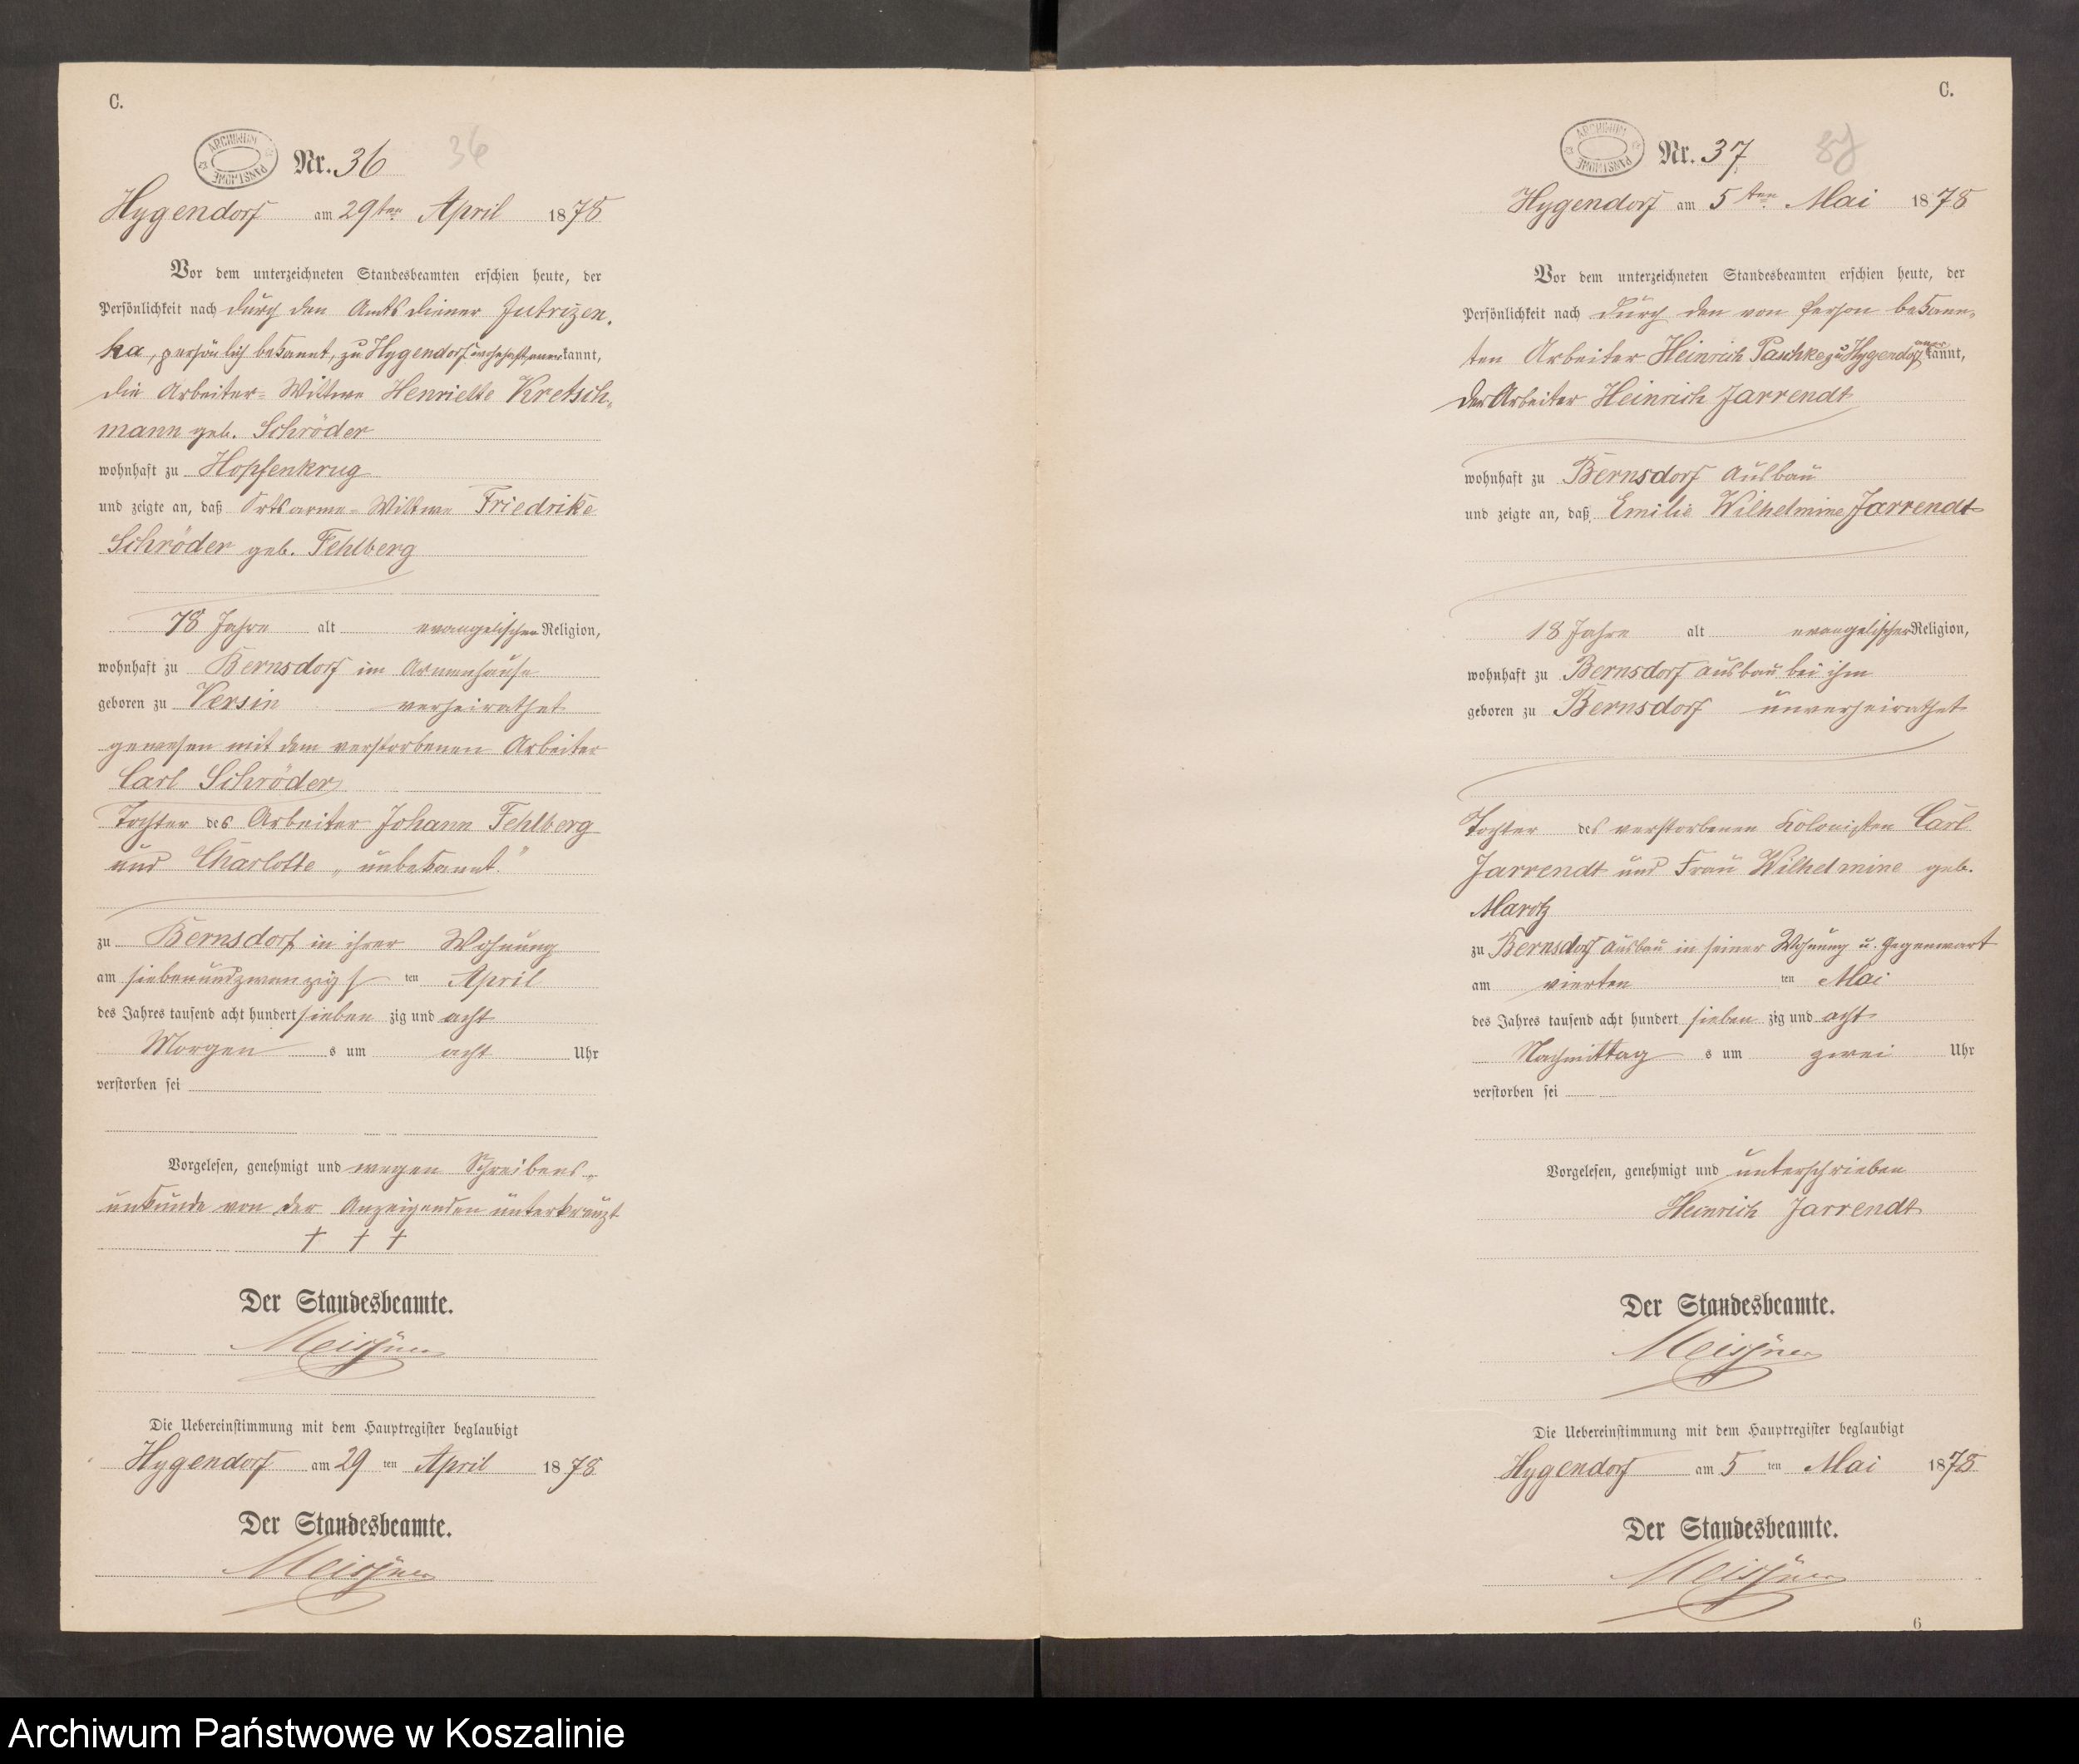 C.
ARCHIWUM PAŃSTWOWE
Nr. 36
36
Hygendorf am 29ten April 1878
Vor dem unterzeichneten Standesbeamten erschien heute, der
Persönlichkeit nach durch den Amtsdiener Jutrizen-
ka, persönlich bekannt, zu Hygendorf wohnhaft anerkannt,
die Arbeiter-Wittwe Henriette Kretsch-
mann geb. Schröder
wohnhaft zu Hopfenkrug
und zeigte an, daß Ortsarme-Wittwe Friedrike
Schröder geb. Fehlberg
78 Jahre alt evangelischer Religion,
wohnhaft zu Bernsdorf im Armenhause
geboren zu Versin verheirathet
gewesen mit dem verstorbenen Arbeiter
Carl Schröder
Tochter des Arbeiter Johann Fehlberg
und Charlotte „unbekannt."
zu Bernsdorf in ihrer Wohnung
am siebenundzwanzigsten April
des Jahres tausend acht hundert siebenzig und acht
Morgens um acht Uhr
verstorben sei
Vorgelesen, genehmigt und wegen Schreibens-
unkunde von der Anzeigenden unterkreuzt
† † †
Der Standesbeamte.
Meissner
Die Uebereinstimmung mit dem Hauptregister beglaubigt
Hygendorf am 29ten April 1878
Der Standesbeamte.
Meissner
C.
ARCHIWUM PAŃSTWOWE
Nr. 37
37
Hygendorf am 5ten Mai 1878
Vor dem unterzeichneten Standesbeamten erschien heute, der
Persönlichkeit nach durch den von Person bekann-
ten Arbeiter Heinrich Paschke zu Hygendorf anerkannt,
der Arbeiter Heinrich Jarrendt
wohnhaft zu Bernsdorf Ausbau
und zeigte an, daß Emilie Wilhelmine Jarrendt
18 Jahre alt evangelischer Religion,
wohnhaft zu Bernsdorf Ausbau bei ihm
geboren zu Bernsdorf unverheirathet
Tochter des verstorbenen Kolonisten Carl
Jarrendt und Frau Wilhelmine geb.
Marotz
zu Bernsdorf Ausbau in seiner Wohnung u. Gegenwart
am vierten ten Mai
des Jahres tausend acht hundert siebenzig und acht
Nachmittags um zwei Uhr
verstorben sei
Vorgelesen, genehmigt und unterschrieben
Heinrich Jarrendt
Der Standesbeamte.
Meissner
Die Uebereinstimmung mit dem Hauptregister beglaubigt
Hygendorf am 5ten Mai 1878
Der Standesbeamte.
Meissner
6
Archiwum Państwowe w Koszalinie